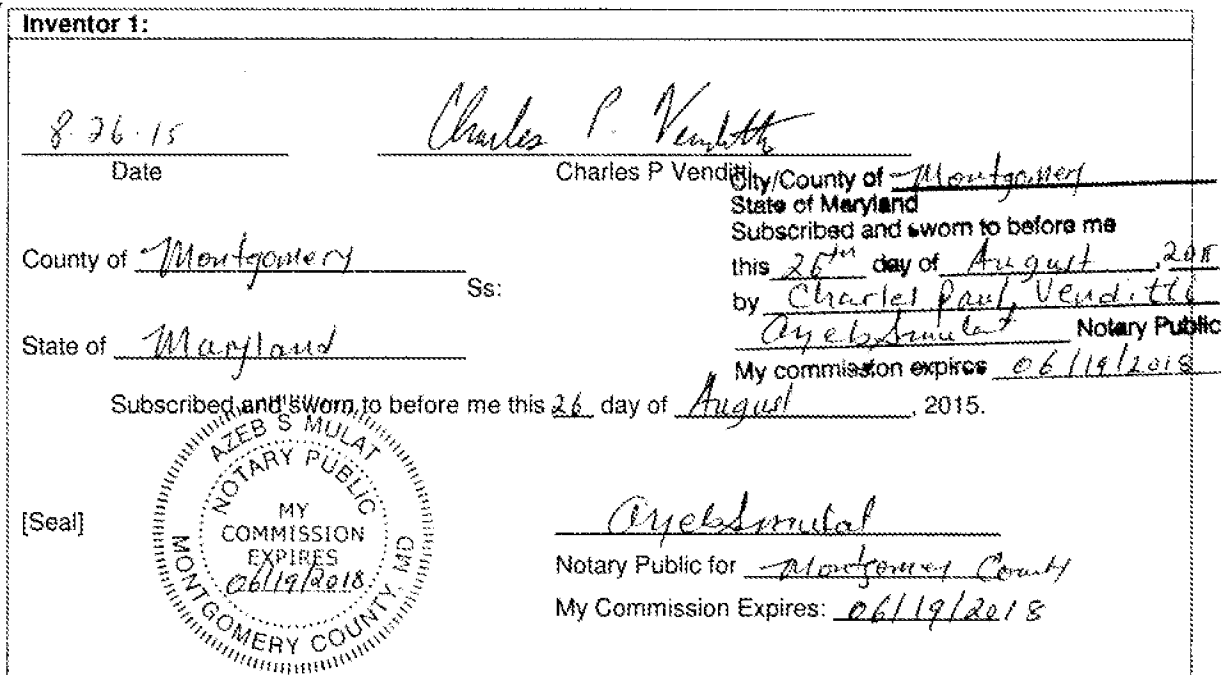 Inventor 1:
8.26.15
Charles P. Venditti
Date
Charles P Venditti
City/County of Montgomery
State of Maryland
Subscribed and sworn to before me
this 26th day of August, 2015
by Charles Paul Venditti
Notary Public
My commission expires 06/19/2018
County of Montgomery
Ss:
State of Maryland
Subscribed and sworn to before me this 26 day of August, 2015.
[Seal]
AZEB S MULAT
NOTARY PUBLIC
MY
COMMISSION
EXPIRES
06/19/2018
MONTGOMERY COUNTY, MD
Notary Public for Montgomery County
My Commission Expires: 06/19/2018